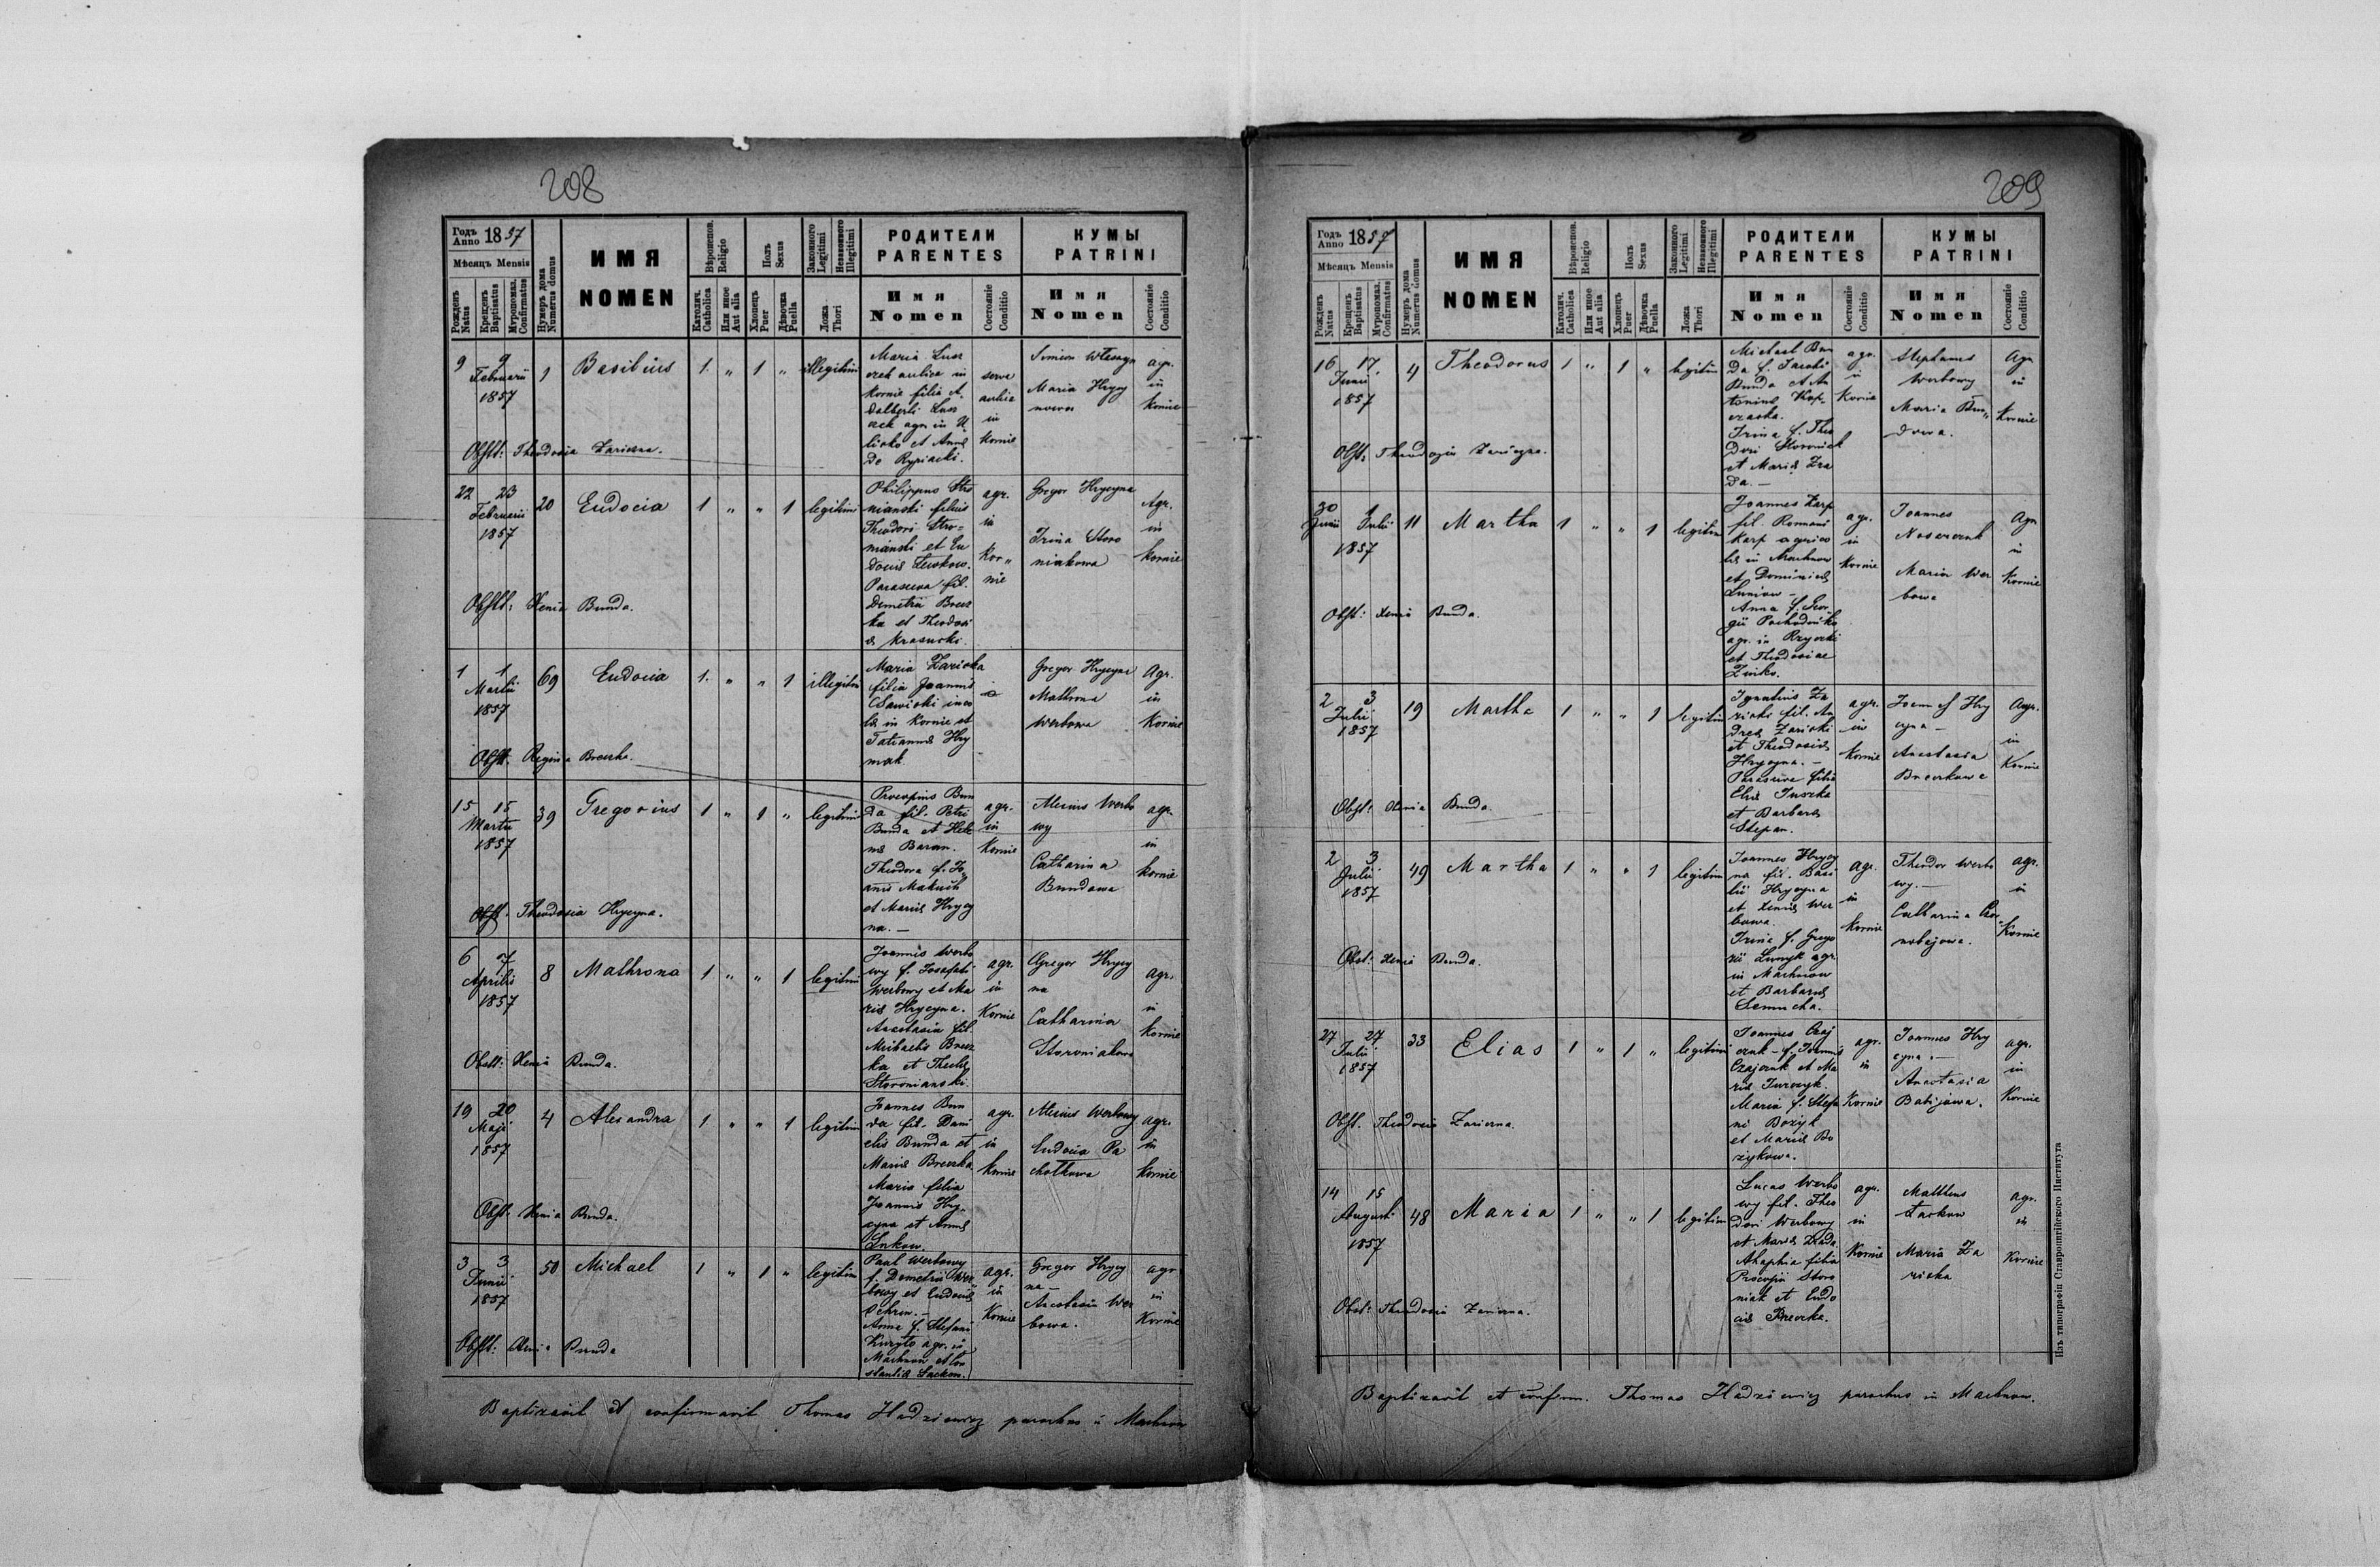 208
Годъ Anno 1857
Мѣсяцъ Mensis
Рожденъ Natus
Крещенъ Baptisatus
Мѵропомаз. Confirmatus
Нумеръ дома Numerus domus
ИМЯ NOMEN
Вѣроиспов. Religio
Католич. Catholica
Или иное Aut alia
Полъ Sexus
Хлопецъ Puer
Дѣвочка Puella
Законного Legitimi
Незаконного Illegitimi
Ложа Thori
РОДИТЕЛИ PARENTES
Имя Nomen
Состояніе Conditio
КУМЫ PATRINI
Имя Nomen
Состояніе Conditio
9 9 Februarii 1857
1
Basilius
1 " 1 "
illegitimi
Maria
aulica in
Kornie filia A
dalberti
agr. in
et Anna
de
aulica
in
Kornie
Simeon
Maria Hrycy
nowa
agr.
in
Kornie
Obstt: Theodosia
22 23 Februarii 1857
20
Eudocia
1 " " 1
legitimi
Philippus Sto
nianski filius
Theodori Sto-
nianski et Eu
Parasceva fil.
Demetrii Brecz
ka et Theodosi
agr.
in
Kor"
nie
Gregor Hrycyna
Irina Storo
niakowa
Agr.
in
Kornie
Obstt: Xenia Bunda.
1 1 Martii 1857
69
Eudocia
1. " " 1
illegitimi
Maria Zariska
filia Joannis
Sawicki inco
in Kornie et
Tatianna Hry
Gregor Hrycyna
Mathrona
Werbowa
Agr.
in
Kornie
Obstt. Regina Breczka.
15 15 Martii 1857
39
Gregorius
1 " 1 "
legitimi
Procopius Bun
da fil. Petri
Bunda et Hele
na Baran.
Theodora f. Jo
annis Makuch
et Maria Hrycy
na. —
agr.
in
Kornie
Alexius Werbo
wy
Catharina
Bundowa
agr.
in
Kornie
Obstt. Theodosia Hrycyna.
6 7 Aprilis 1857
8
Mathrona
1 " " 1
legitimi
Joannis Werbo
wy f. Josafati
Werbowy et Ma
ria Hrycyna.
Anastasia fil.
Michaelis Brecz
ka et Thecla
Storonianski.
agr.
in
Kornie
Gregor Hrycy
na
Catharina
Storoniakowa
agr.
in
Kornie
Obstt: Xenia Bunda.
19 20 Maji 1857
4
Alexandra
1 " " 1
legitimi
Joannes Bun
da fil. Dani
elis Bunda et
Maria Breczka
Maria filia
Joannis Hry
cyna et Anna
agr.
in
Kornie
Alexius Werbowy
Eudocia Pa
cholkowa
agr.
in
Kornie
Obstt: Xenia Bunda.
3 3 Junii 1857
50
Michael
1 " 1 "
legitimi
Paul Werbowy
f. Demetrii Wer
bowy et Eudocia
Anna f. Stefani
agr. in
Machnow
agr.
in
Kornie
Gregor Hrycy
na —
Anastasia Wer
bowa.
agr
in
Kornie
Obstt: Xenia Bunda
Baptizavit et confirmavit Thomas Hadziewicz parochus in Machnow
209
Годъ Anno 1857
Мѣсяцъ Mensis
Рожденъ Natus
Крещенъ Baptisatus
Мѵропомаз. Confirmatus
Нумеръ дома Numerus domus
ИМЯ NOMEN
Вѣроиспов. Religio
Католич. Catholica
Или иное Aut alia
Полъ Sexus
Хлопецъ Puer
Дѣвочка Puella
Законного Legitimi
Незаконного Illegitimi
Ложа Thori
РОДИТЕЛИ PARENTES
Имя Nomen
Состояніе Conditio
КУМЫ PATRINI
Имя Nomen
Состояніе Conditio
16 17. Junii 1857
4
Theodorus
1 " 1 "
legitimi
Michael Bun
da f. Jacobi
Bunda et An
Irina f. Theo
dori Storoniak
et Maria Zra
da. —
agr.
in
Kornie
Stephanus
Werbowy
Maria Bun"
dowa.
Agr
in
Kornie
Obstt: Theodozia
30 Junii 1 Julii 1857
11
Martha
1 " " 1
legitimi
Joannes Karp
fil. Romani
Karp agrico
in Machnow
et Dominica
Anna f. Geor
gii
agr. in
et Theodosiae
Zinko.
agr.
in
Kornie
Joannes
Maria Wer
bowa
Agr
in
Kornie
Obstt: Xenia Bunda.
2 3 Julii 1857
19
Martha
1 " " 1
legitimi
Ignatius Za
ricki fil. An
drea Zaricki
et Theodosia
Hrycyna. —
Parasceva filia
Elia Juszka
et Barbara
Stepan.
agr.
in
Kornie
Josef Hry
cyna —
Anastasia
Breczkowa
Agr.
in
Kornie
Obstt: Xenia Bunda.
2 3 Julii 1857
49
Martha
1 " " 1
legitimi
Joannes Hrycy
na fil. Basi
lii Hrycyna
et Xenia Wer
bowa.
Irina f. Grego
rii agr.
in Machnow
et Barbara
Semucha.
agr.
in
Kornie
Theodor Werbo
wy. —
Catharina
agr.
in
Kornie
Obstt: Xenia Bunda.
27 27 Julii 1857
33
Elias
1 " 1 "
legitimi
Joannes Czaj
czuk — f. Joannis
Czajczuk et Ma
ria Jurczyk.
Maria f. Stefa
ni Bozyk
et Maria Bo
zykowa.
agr.
in
Kornie
Joannes Hry
cyna. —
Anastasia
Babijowa.
agr.
in
Kornie
Obstt. Theodosia
14 15 Augusti 1857
48
Maria
1 " " 1
legitimi
Lucas Werbo
wy fil. Theo
dori Werbowy
et Maria Zrada
Ahaphia filia
Procopii Storo
niak et Eudo
cia Breczka.
agr.
in
Kornie
Mattheus
Maria Za
ricka
agr.
in
Kornie
Obstt: Theodosia
Baptizavit et confirm. Thomas Hadziewicz parochus in Machnow.
Изъ типографіи Ставропигійского Института